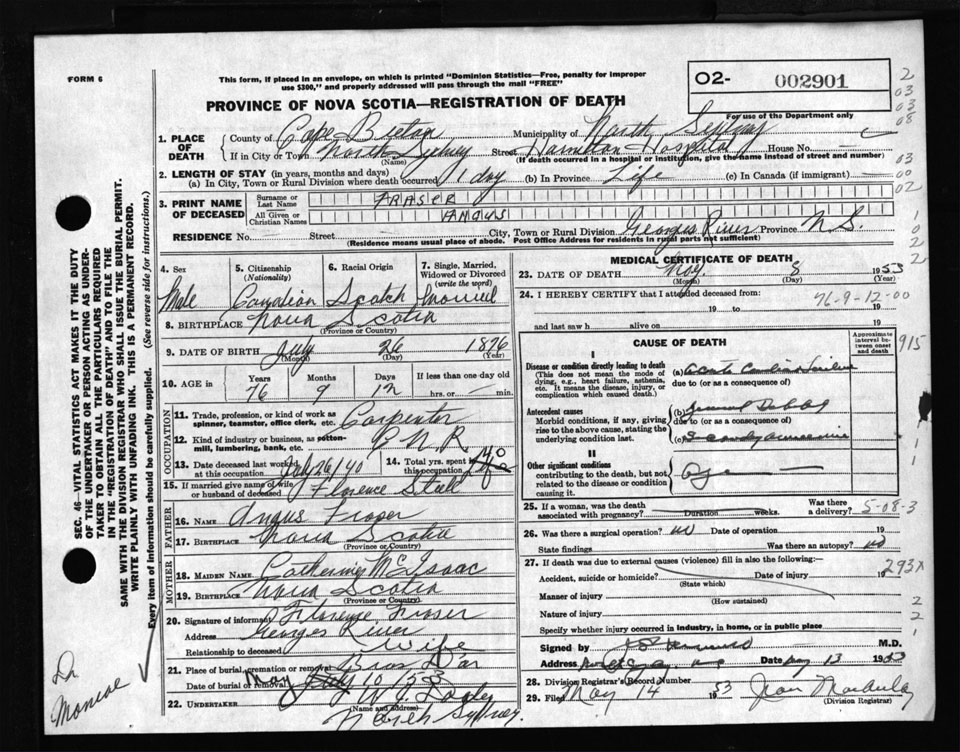 FORM 6
This form, if placed in an envelope, on which is printed "Dominion Statistics—Free, penalty for improper
use $300," and properly addressed will pass through the mail "FREE"
O2- 002901
For use of the Department only
PROVINCE OF NOVA SCOTIA—REGISTRATION OF DEATH
1. PLACE OF DEATH
County of Cape Breton Municipality of North Sydney
If in City or Town North Sydney Street Hamilton Hospital House No. —
(Name) (If death occurred in a hospital or institution, give the name instead of street and number)
2. LENGTH OF STAY (in years, months and days)
(a) In City, Town or Rural Division where death occurred 1 day (b) In Province Life (c) In Canada (if immigrant) —
3. PRINT NAME OF DECEASED
Surname or Last Name FRASER
All Given or Christian Names ANGUS
RESIDENCE No. — Street — City, Town or Rural Division Georges River Province N.S.
(Residence means usual place of abode. Post Office Address for residents in rural parts not sufficient)
4. Sex Male
5. Citizenship (Nationality) Canadian
6. Racial Origin Scotch
7. Single, Married, Widowed or Divorced (write the word) Married
8. BIRTHPLACE Nova Scotia
(Province or Country)
9. DATE OF BIRTH July 26 1876
(Month) (Day) (Year)
10. AGE in Years 76 Months 9 Days 12 If less than one day hrs. or — min.
OCCUPATION
11. Trade, profession, or kind of work as
spinner, teamster, office clerk, etc. Carpenter
12. Kind of industry or business, as cotton-
mill, lumbering, bank, etc. C N R
13. Date deceased last worked at this occupation July 26/40
14. Total yrs. spent in this occupation 40
15. If married give name of wife
or husband of deceased Florence
FATHER
16. NAME Angus Fraser
17. BIRTHPLACE Nova Scotia
(Province or Country)
MOTHER
18. MAIDEN NAME Catherine McIsaac
19. BIRTHPLACE Nova Scotia
(Province or Country)
20. Signature of informant Florence Fraser
Address Georges River
Relationship to deceased Wife
21. Place of burial, cremation or removal Bras D'or
Date of burial or removal May 10 1953
22. UNDERTAKER W.
(Name and Address)
North Sydney
MEDICAL CERTIFICATE OF DEATH
23. DATE OF DEATH May 8 1953
(Month) (Day) (Year)
24. I HEREBY CERTIFY that I attended deceased from:
76-9-12-00
19 to 19
and last saw h alive on 19
CAUSE OF DEATH
Approximate interval between onset and death
I
Disease or condition directly leading to death
(This does not mean the mode of
dying, e.g., heart failure, asthenia,
etc. It means the disease, injury, or
complication which caused death.)
(a) Acute Cardiac Failure
due to (or as a consequence of)
Antecedent causes
Morbid conditions, if any, giving
rise to the above cause, stating the
underlying condition last.
(b) General Debility
due to (or as a consequence of)
(c) Secondary anaemia
II
Other significant conditions
contributing to the death, but not
related to the disease or condition
causing it.
Age
915
25. If a woman, was the death
associated with pregnancy? Duration weeks. Was there a delivery?
5-08-3
26. Was there a surgical operation? no Date of operation 19
State findings Was there an autopsy? no
27. If death was due to external causes (violence) fill in also the following:
293X
Accident, suicide or homicide? Date of injury 19
(State which)
Manner of injury
(How sustained)
Nature of injury
Specify whether injury occurred in industry, in home, or in public place
Signed by M.D.
Address Date May 13 1953
28. Division Registrar's Record Number
29. Filed May 14 1953 Jean
(Division Registrar)
SEC. 46—VITAL STATISTICS ACT MAKES IT THE DUTY
OF THE UNDERTAKER OR PERSON ACTING AS UNDER-
TAKER TO OBTAIN ALL THE PARTICULARS REQUIRED
IN THE "REGISTRATION OF DEATH" AND TO FILE THE
SAME WITH THE DIVISION REGISTRAR WHO SHALL ISSUE THE BURIAL PERMIT.
WRITE PLAINLY WITH UNFADING INK. THIS IS A PERMANENT RECORD.
Every item of information should be carefully supplied. (See reverse side for instructions.)
Dr
Monroe
2
03
03
08
03
00
02
1
0
2
2